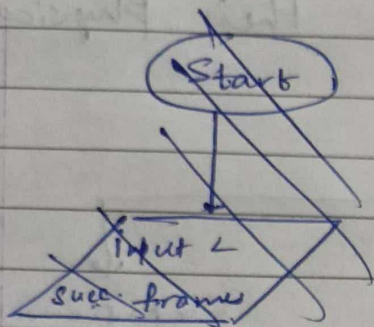 Start
Input 2
succ. frames